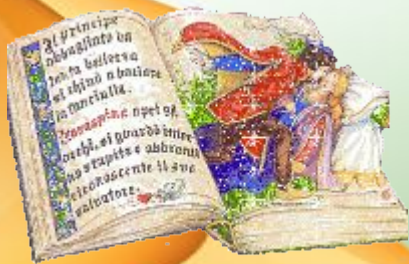 Il principe
abbagliato da
tanta bellezza
si chinò a baciare
la fanciulla.
Rosaspina aprì gli
occhi, si guardò intor
no stupita e abbrac
riconoscente il suo
salvatore.